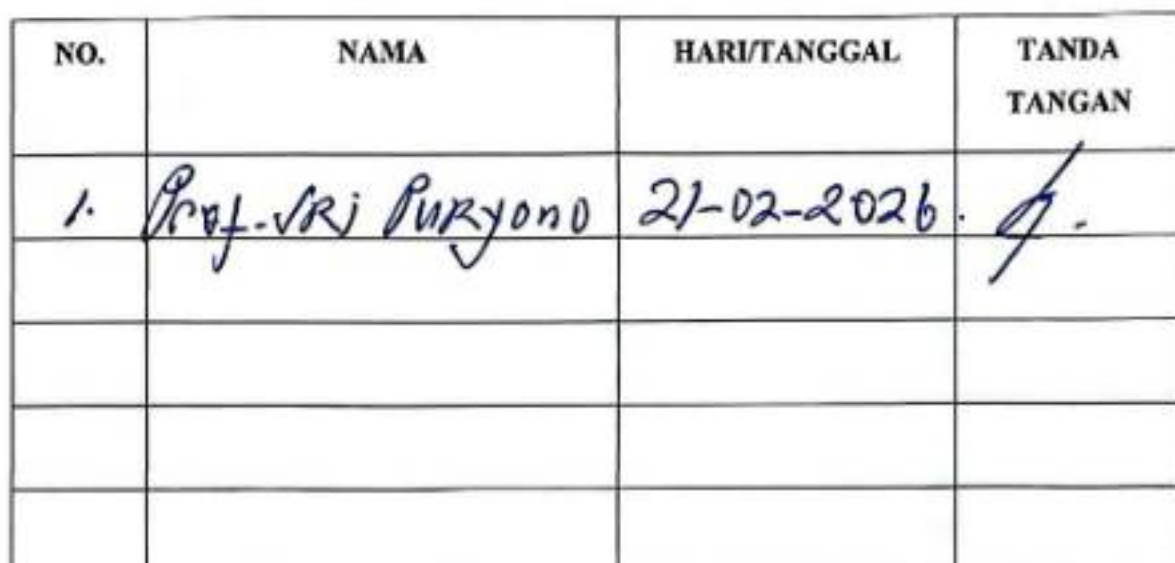 NO. NAMA HARI/TANGGAL TANDA
TANGAN
1. Prof. SRi PuRyono 21-02-2026.